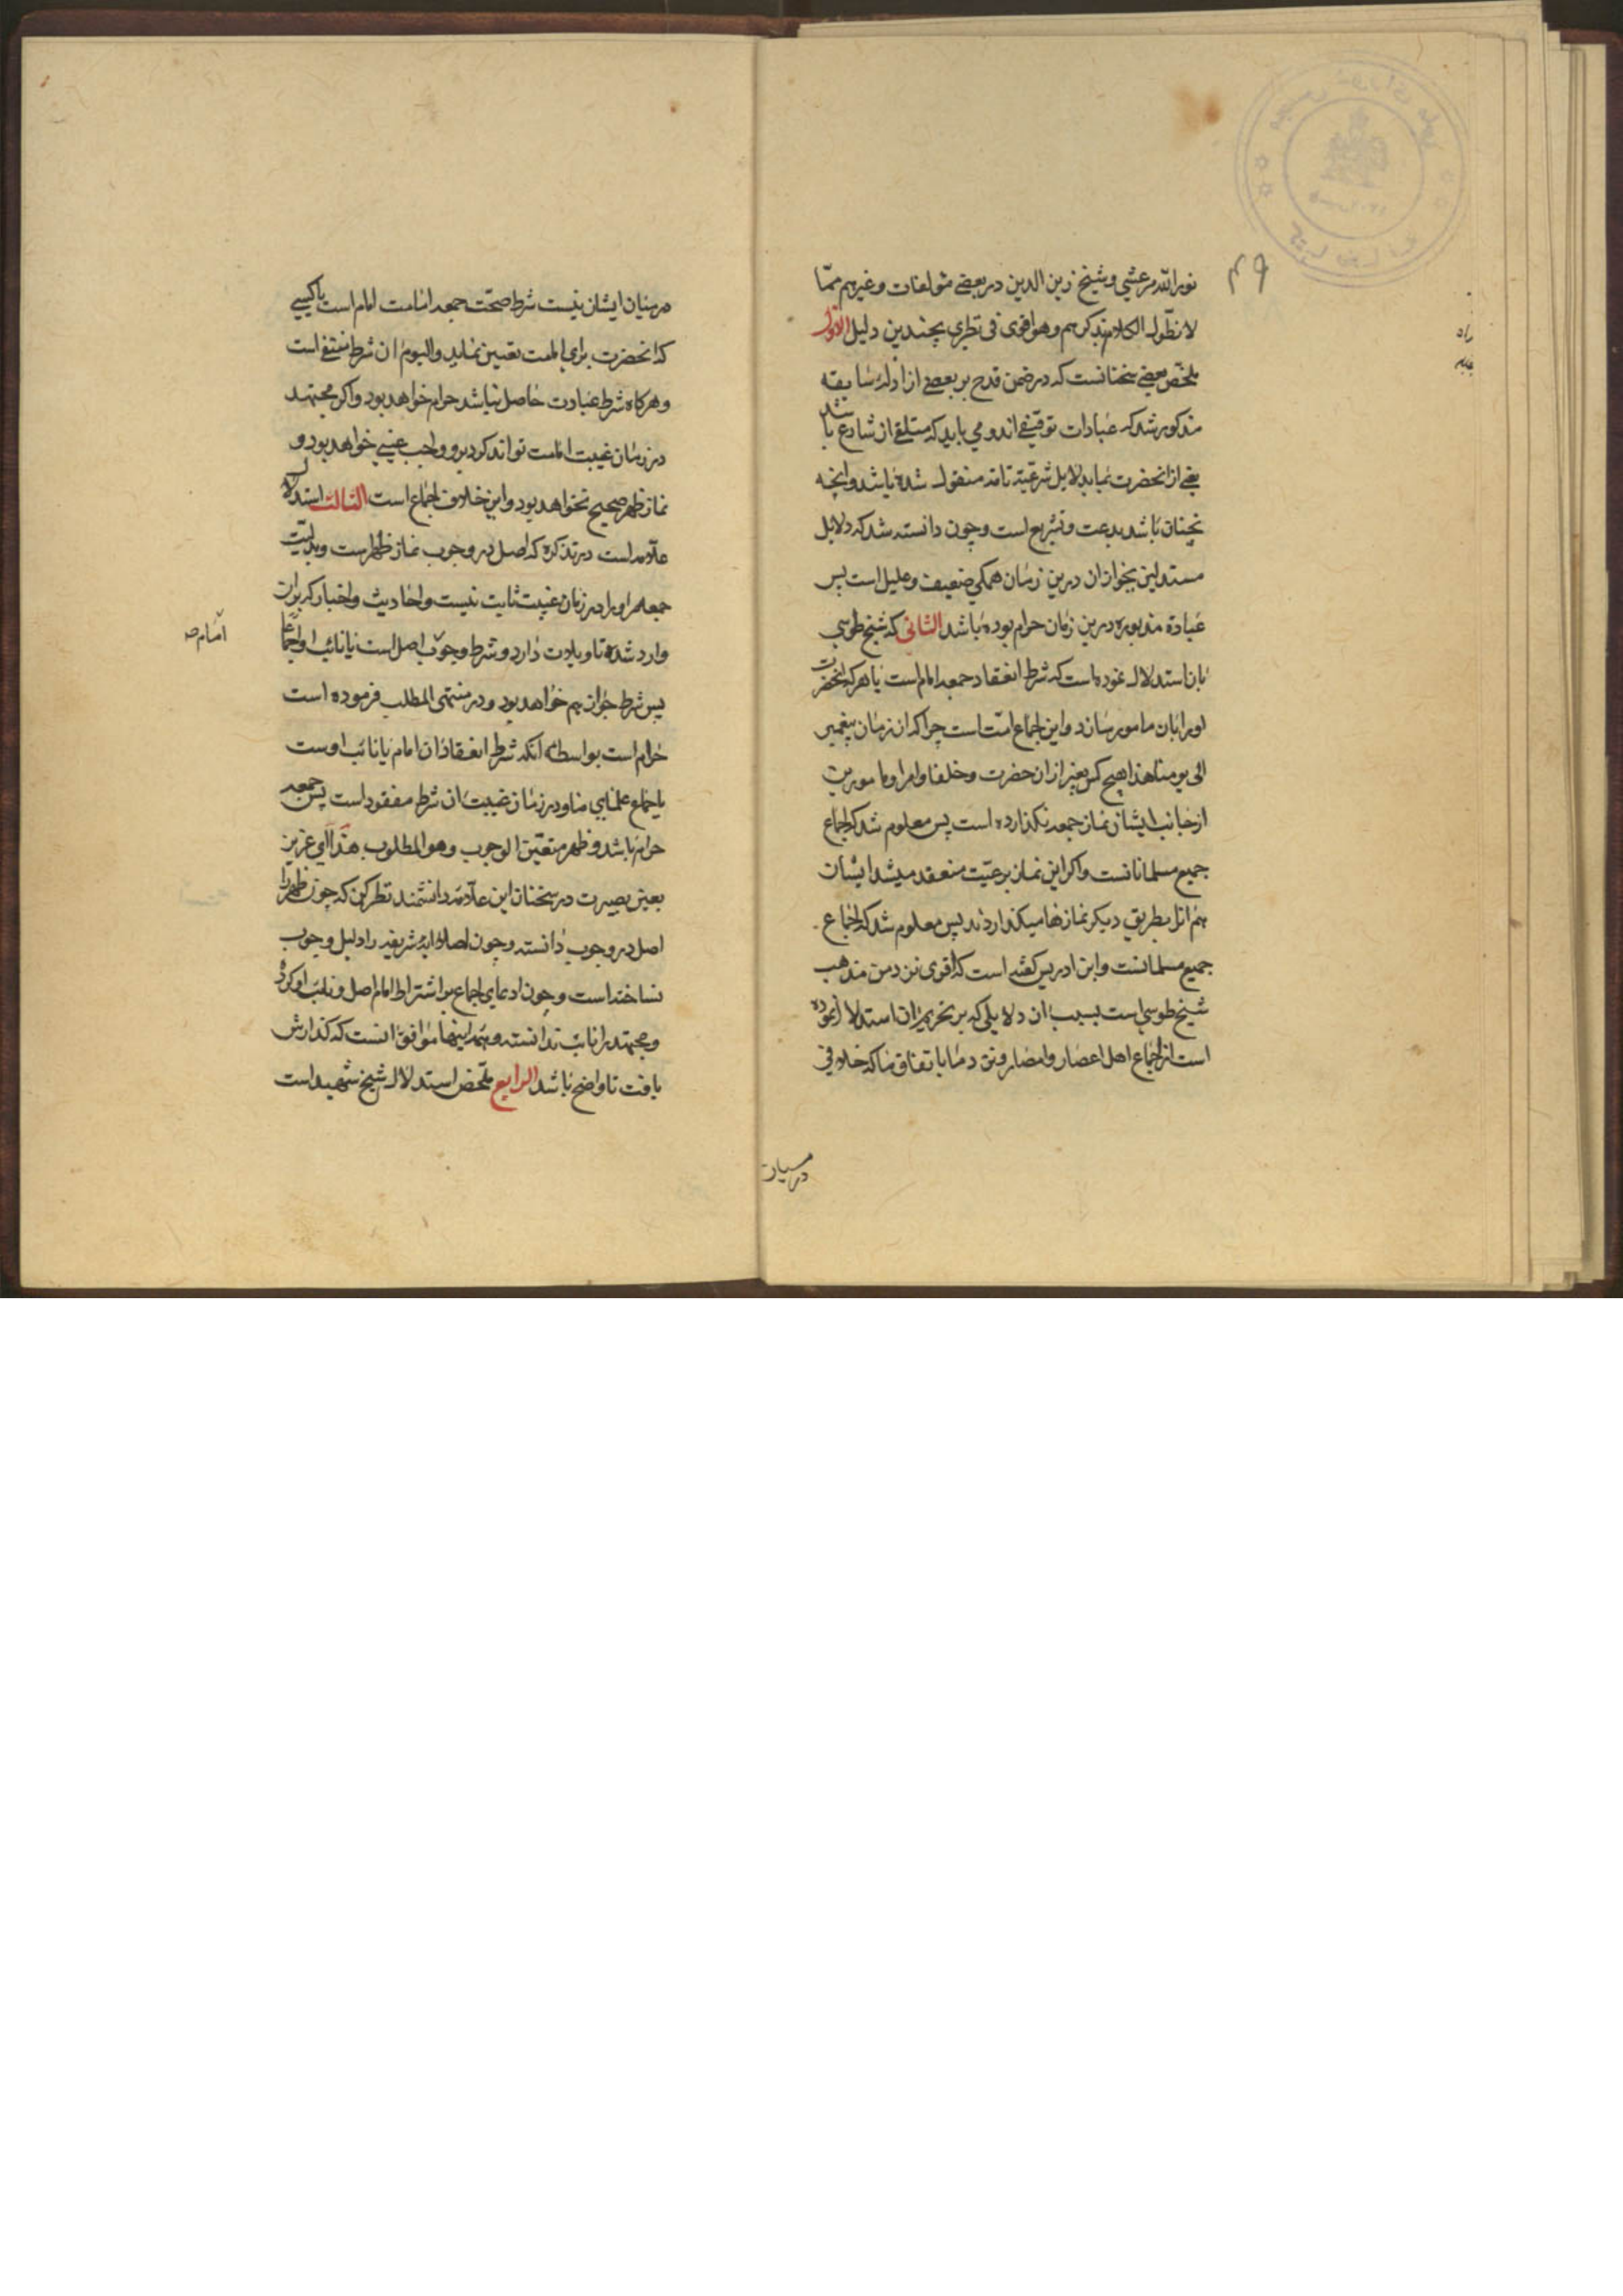 نورالله مرعشي وشيخ زين الدين در بعضے مؤلفات وغيرهم ممّا
لا نطّول الكلام بذكرهم وهو اقوى فى نظري بچندين دليل الاوّل
ملخّص بعضے سخنانست كه در ضمن قدح بر بعضے از ادلهٔ سابقه
مذكور شد كه عبادات توقيفے اند و مي بايد كه متلقے از شارع باشد
يعنے از انحضرت نمايد لايل شرعيّة تامّه منقول شده باشد وانچه
نچنان باشد بدعت وتشريع است وچون دانسته شد كه دلايل
مستدلين بجواز ان درين زمان همگي ضعيف وعليل است پس
عبادة مذبوره درين زمان حرام بوده باشد الثانى كه شيخ طوسي
بان استدلال نموده است كه شرط انعقاد جمعه امام است يا هر كه انحضرت
او را بان مامور سازد واين اجماع امّت است چرا كه از زمان پيغمبر
الى يومنا هذا هيچ كس بغير از ان حضرت وخلفا وامرا ومامورين
از جانب ايشان نماز جمعه نگذارده است پس معلوم شد كه اجماع
جميع مسلمانانست واگر اين نماز برعيّت منعقد ميشد ايشان
هم انرا بطريق ديگر نمازها ميگذاردند پس معلوم شد كه اجماع
جميع مسلمانست وابن ادريس گفته است كه اقوى نزد من مذهب
شيخ طوسي است بسبب ان دلايلي كه بر تحريم ان استدلال نموده
است از اجماع اهل اعصار وامصار ونزد ما باتفاق ما كه خلافى
در ميان
در ميان ايشان نيست شرط صحّت جمعه امامت امام است يا كسي
كه انحضرت براي امامت تعيين نمايد واليوم ان شرط منتفے است
وهرگاه شرط عبادت حاصل نباشد حرام خواهد بود واگر مجتهد
در زمان غيبت امامت تواند كرد برو واجب عيني خواهد بود و
نماز ظهر صحيح نخواهد بود واين خلاف اجماع است الثالث استدلال
علّامه است در تذكره كه اصل در وجوب نماز ظهر است وبدليّت
جمعه مر او را در زمان غيبت ثابت نيست واحاديث واخبار كه بران
وارد شده تاويلات دارد وشرط وجوب اصل است يا نائب او اجماعا
امام صح
پس شرط جواز هم خواهد بود ودر منتهى المطلب فرموده است
حرام است بواسطهٔ آنكه شرط انعقاد ان امام يا نائب اوست
باجماع علماي ما ودر زمان غيبت ان شرط مفقود است پس جمعه
حرام باشد وظهر متعيّن الوجوب وهو المطلوب هذا اي عزيز
بعين بصيرت در سخنان اين علّامهٔ دانشمند نظر كن كه چون ظهر را
اصل در وجوب دانسته وچون اصلا ايهٔ شريفه را دليل وجوب
نساخته است وچون ادعاي اجماع بر اشتراط امام اصل ونائب او كرده
ومجتهد را نائب ندانسته وهمه اينها موافق انست كه گذارش
يافت تا واضح باشد الرابع ملخّص استدلال شيخ شهيد است